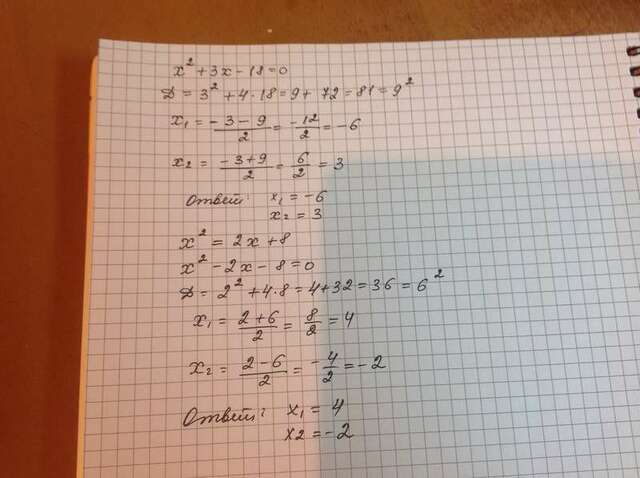 x² + 3x - 18 = 0
D = 3² + 4 · 18 = 9 + 72 = 81 = 9²
x₁ = (-3 - 9)/2 = -12/2 = -6
x₂ = (-3 + 9)/2 = 6/2 = 3
Ответ: x₁ = -6
x₂ = 3
x² = 2x + 8
x² - 2x - 8 = 0
D = 2² + 4 · 8 = 4 + 32 = 36 = 6²
x₁ = (2 + 6)/2 = 8/2 = 4
x₂ = (2 - 6)/2 = -4/2 = -2
Ответ: x₁ = 4
x2 = -2